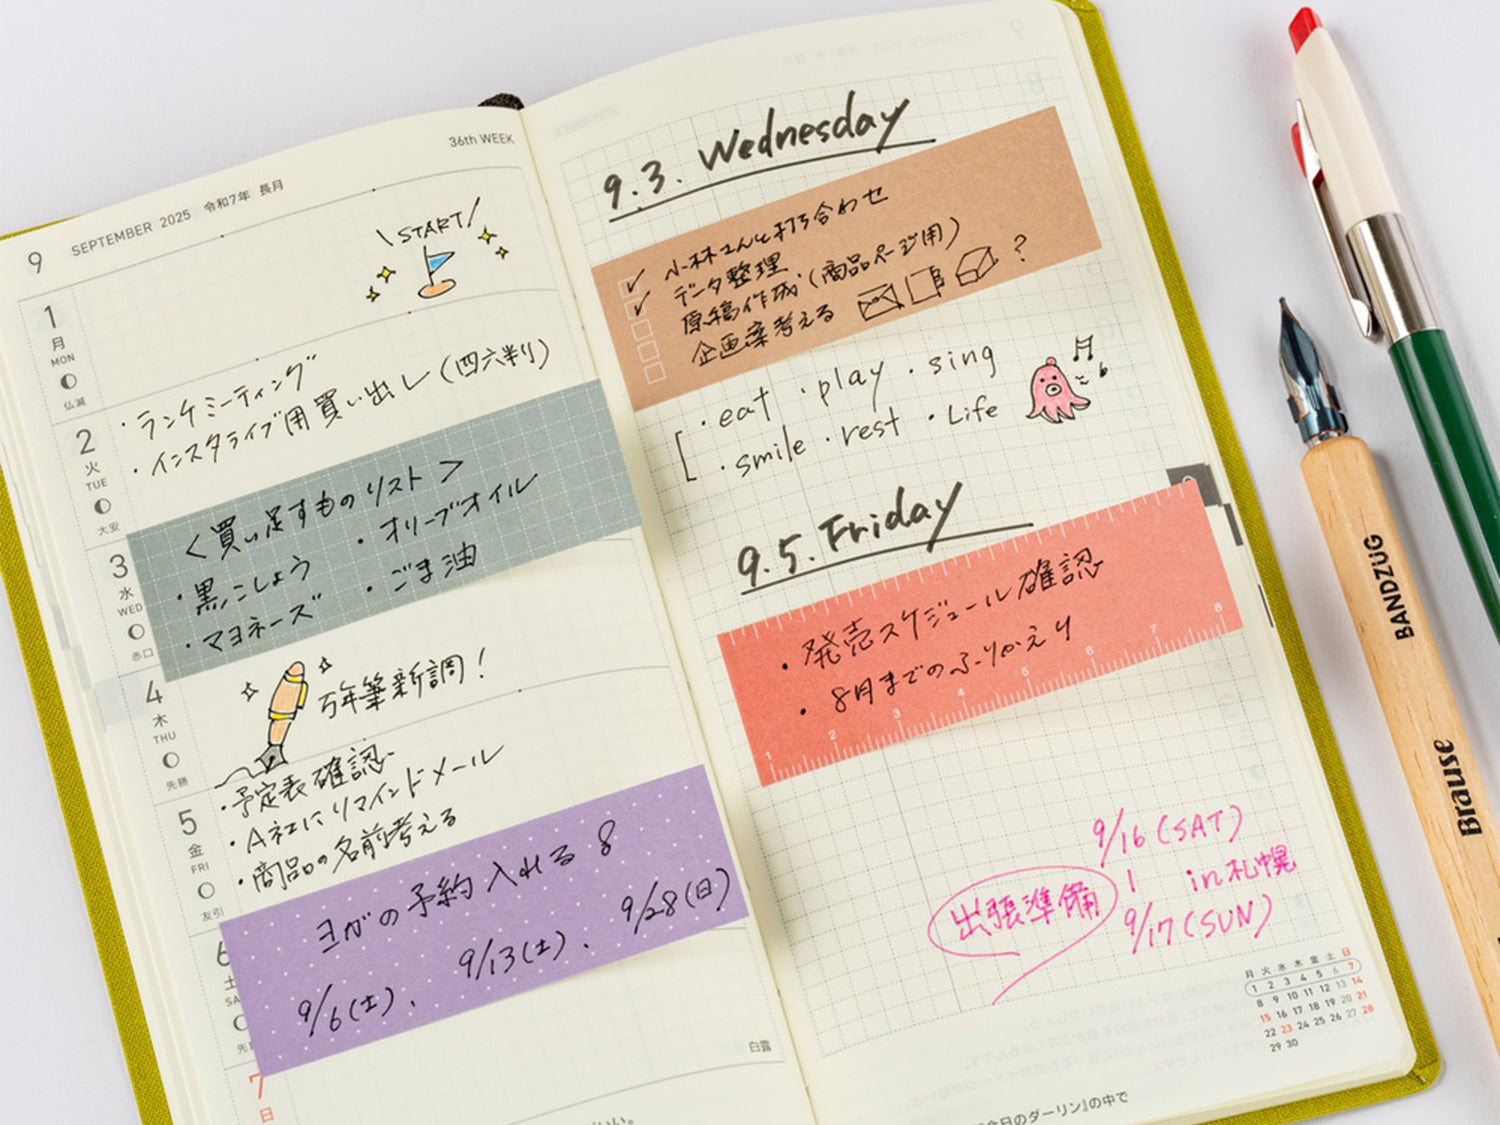 36th WEEK
9 SEPTEMBER 2025 令和7年 長月
1
月
MON
仏滅
\START/
2
火
TUE
大安
・ランチミーティング
・インスタライブ用買い出し(四六判)
3
水
WED
赤口
<買い足すものリスト>
・黒こしょう ・オリーブオイル
・マヨネーズ ・ごま油
4
木
THU
先勝
万年筆新調!
5
金
FRI
友引
・予定表確認
・A社にリマインドメール
・商品の名前考える
6
土
SA
先
ヨガの予約入れる 8
9/6(土)、 9/13(土)、 9/28(日)
7
日
白露
いい。
9.3. Wednesday
✓ 小林さんと打ち合わせ
✓ データ整理
原稿作成(商品ページ用)
企画案考える ?
・eat ・play ・sing
・smile ・rest ・Life
9.5. Friday
・発売スケジュール確認
・8月までのふりかえり
1 2 3 4 5 6 7 8
9/16(SAT)
| in 札幌
9/17(SUN)
出張準備
月 火 水 木 金 土 日
1 2 3 4 5 6 7
8 9 10 11 12 13 14
15 16 17 18 19 20 21
22 23 24 25 26 27 28
29 30
今日のダーリン』の中で
BANDZÜG
Brause